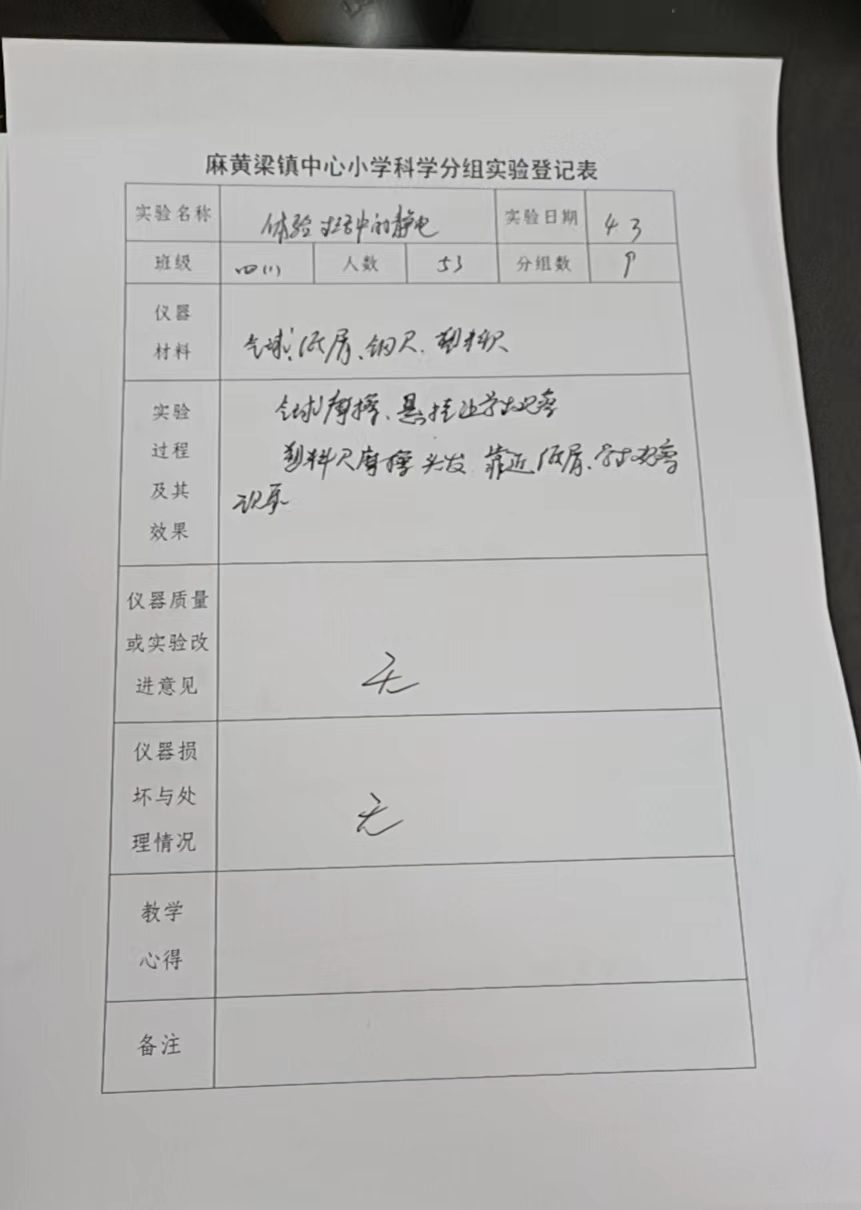 麻黄梁镇中心小学科学分组实验登记表
实验名称 体验生活中的静电 实验日期 4 3
班级 四(1) 人数 53 分组数 9
仪器
材料
气球、纸屑、钢尺、塑料尺
实验
过程
及其
效果
气球摩擦、悬挂让学生观察
塑料尺摩擦头发 靠近纸屑、学生观察
现象
仪器质量
或实验改
进意见
无
仪器损
坏与处
理情况
无
教学
心得
备注